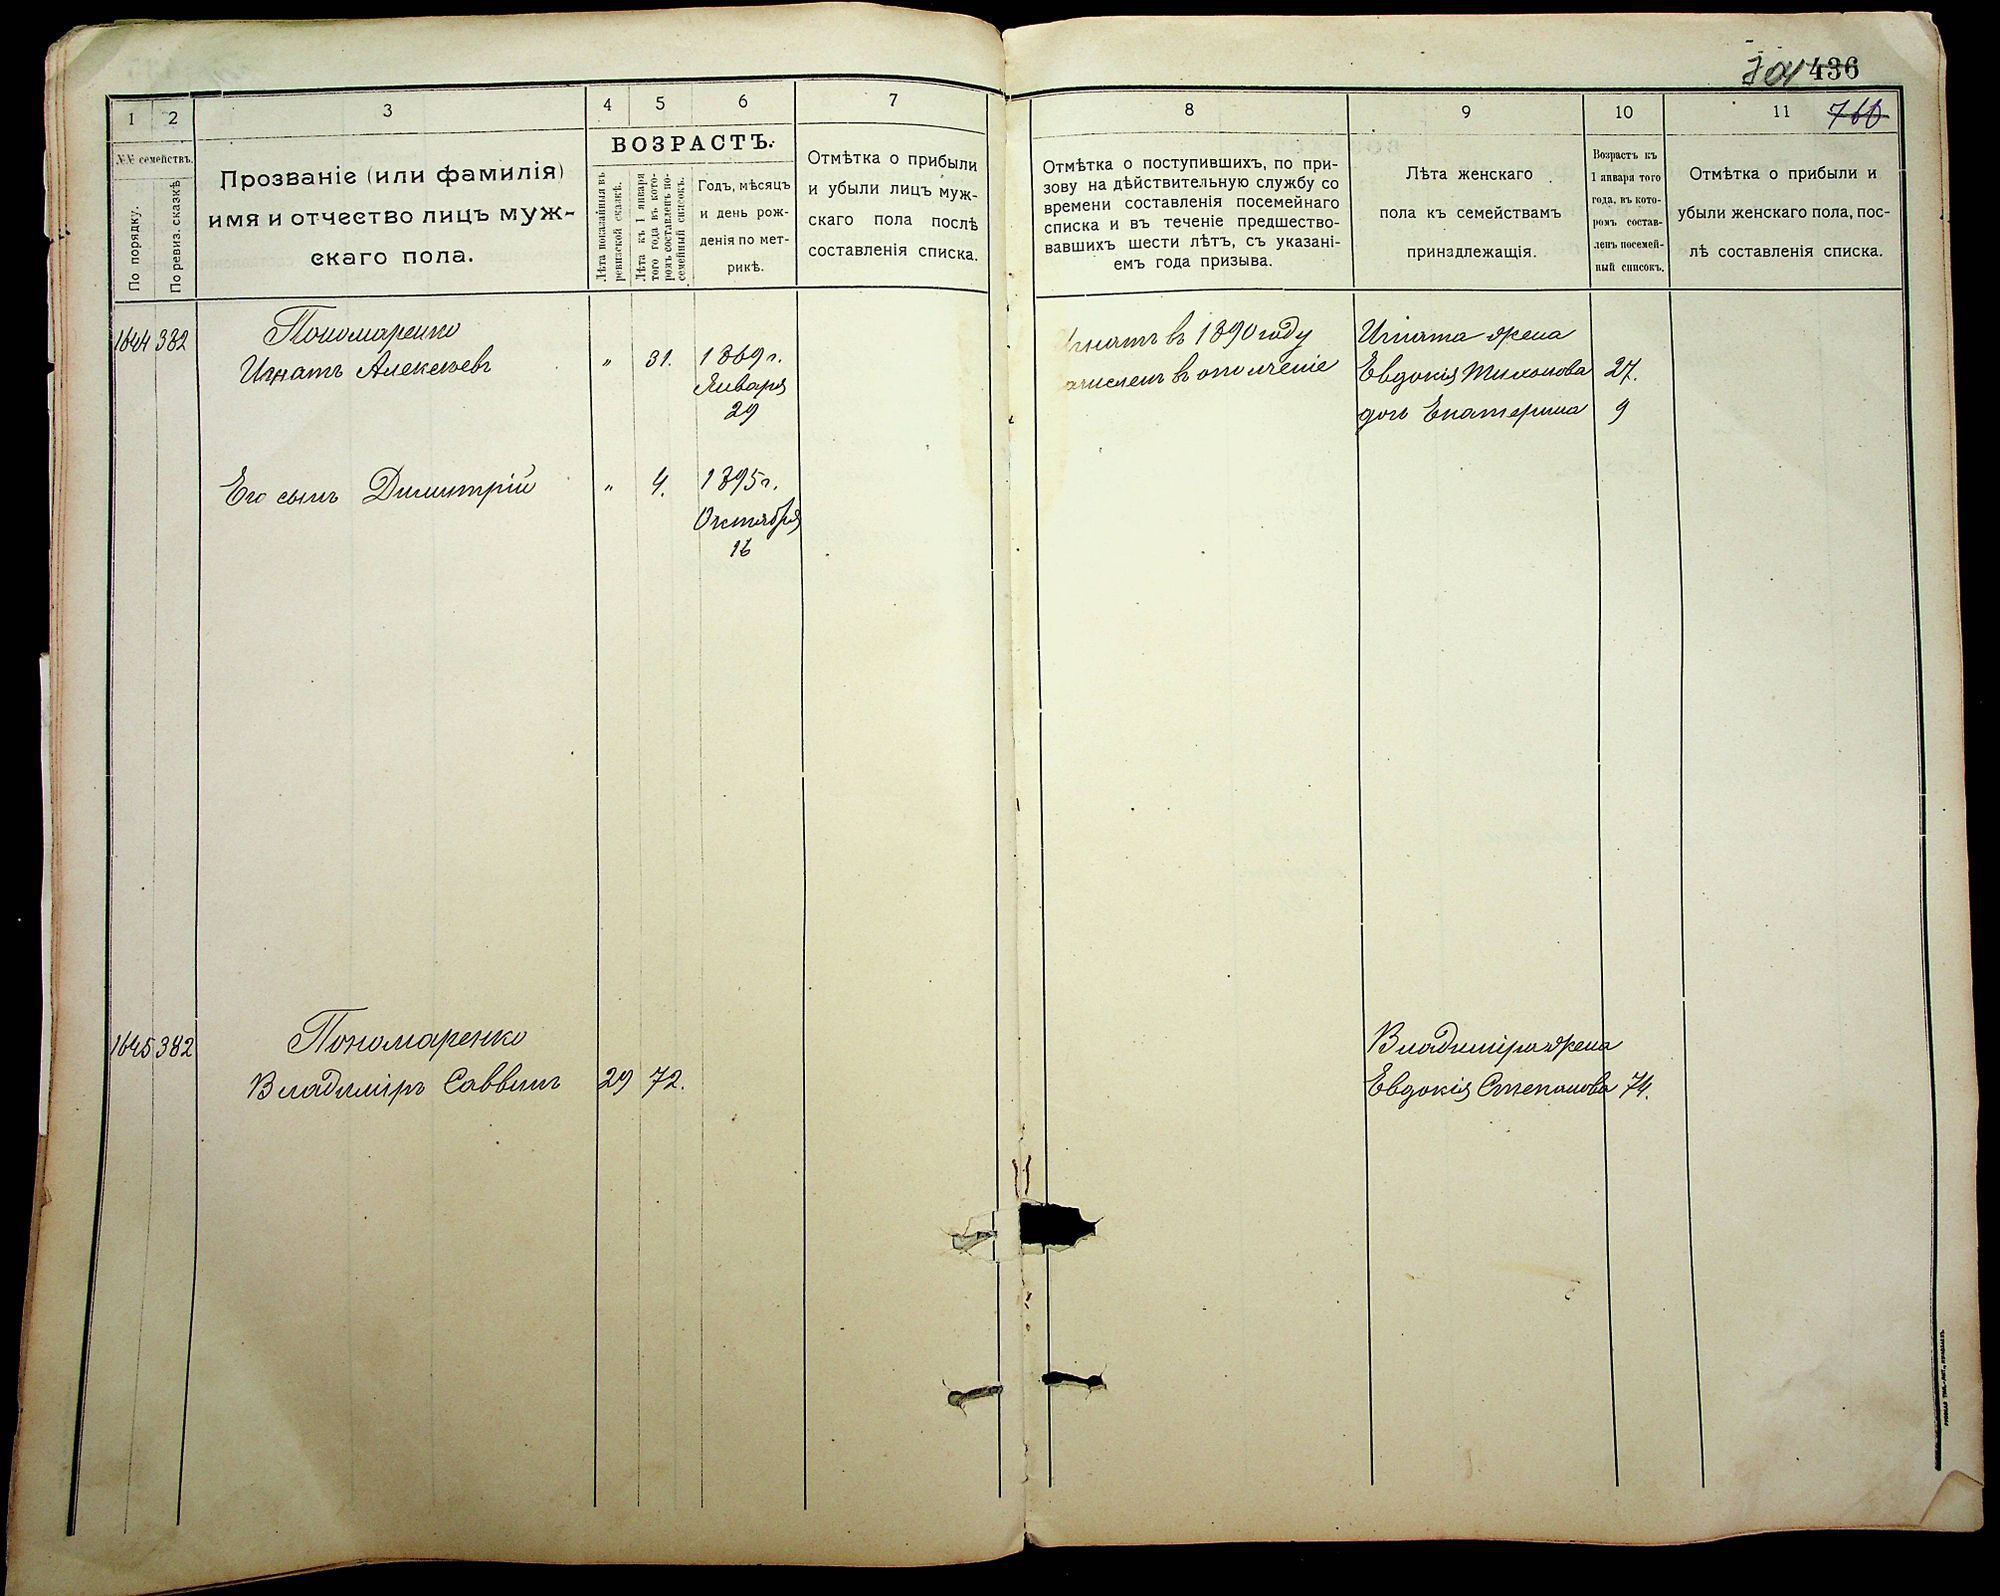 436
760
1
2
3
4
5
6
7
8
9
10
11
№№ семействъ.
По порядку.
По ревиз. сказкѣ
Прозваніе (или фамилія)
имя и отчество лицъ муж-
скаго пола.
ВОЗРАСТЪ.
Лѣта показанныя въ
ревизской сказкѣ.
Лѣта къ 1 января
того года въ кото-
ромъ составленъ по-
семейный списокъ.
Годъ, мѣсяцъ
и день рож-
денія по мет-
рикѣ.
Отмѣтка о прибыли
и убыли лицъ муж-
скаго пола послѣ
составленія списка.
Отмѣтка о поступившихъ, по при-
зову на дѣйствительную службу со
времени составленія посемейнаго
списка и въ теченіе предшество-
вавшихъ шести лѣтъ, съ указані-
емъ года призыва.
Лѣта женскаго
пола къ семействамъ
принадлежащія.
Возрастъ къ
1 января того
года, въ кото-
ромъ состав-
ленъ посемей-
ный списокъ.
Отмѣтка о прибыли и
убыли женскаго пола, пос-
лѣ составленія списка.
1644 382 Пономаренко
Игнатъ Алексѣевъ " 31. 1869 г.
Января
29
Игнатъ въ 1890 году
зачисленъ в ополченіе
Игната жена
Евдокія Тихонова 27.
дочь Екатерина 9
Его сынъ Димитрій " 4. 1895 г.
Октября
16
1645 382 Пономаренко
Владиміръ Саввинъ 29 72.
Владиміра жена
Евдокія Степанова 74.